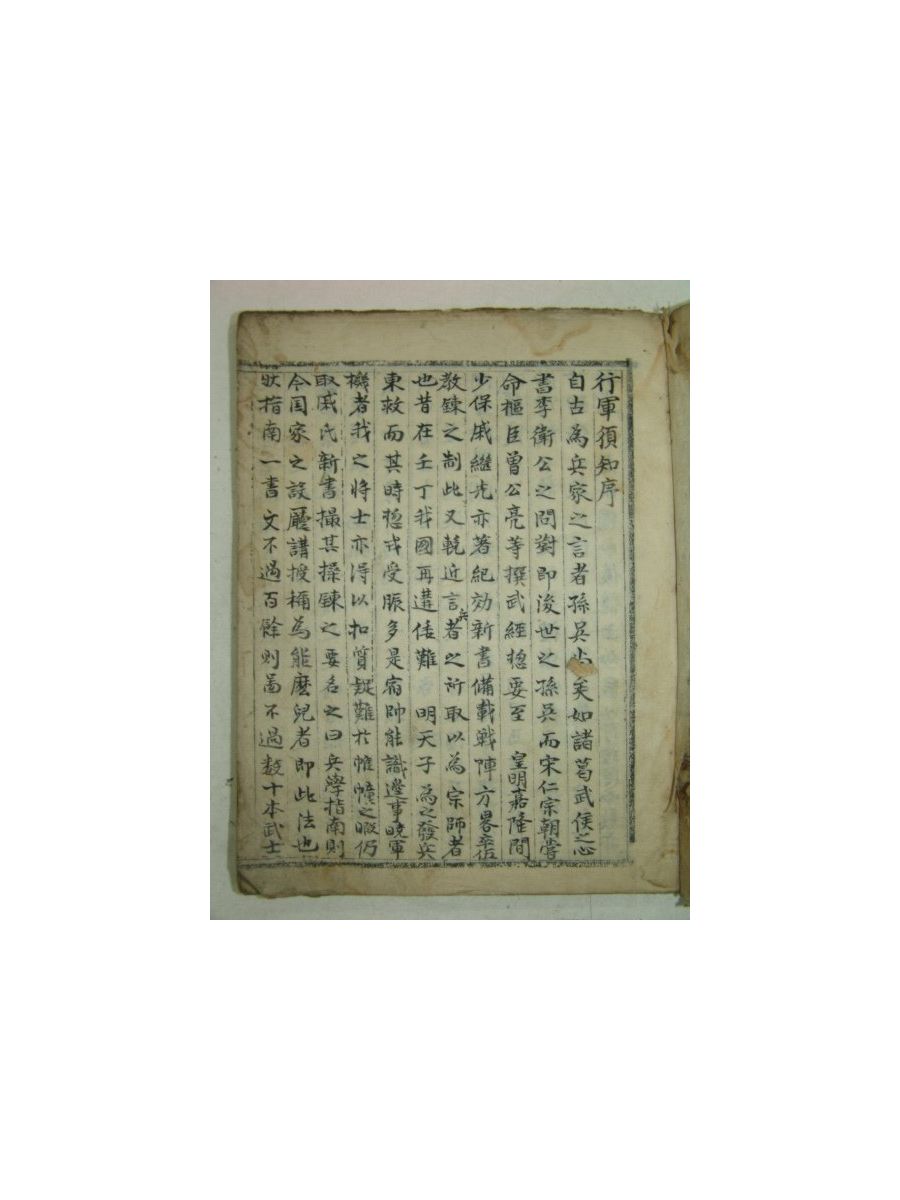 行軍須知序
自古為兵家之言者孫吳尚矣如諸葛武侯之心
書李衛公之問對即後世之孫吳而宋仁宗朝嘗
命樞臣曾公亮等撰武經摠要至皇明嘉隆間
少保戚繼光亦著紀効新書備載戰陣方畧卒伍
教鍊之制此又輓近言兵者之所取以為宗師者
也昔在壬丁我國再遘倭難明天子為之發兵
東救而其時摠戎受脤多是宿帥能識邊事曉軍
機者我之將士亦得以扣質疑難於帷幪之暇仍
取戚氏新書撮其操鍊之要名之曰兵學指南則
今国家之設廳講授稱為能麽兒者即此法也
狀指南一書文不過百餘則啚不過数十本武士